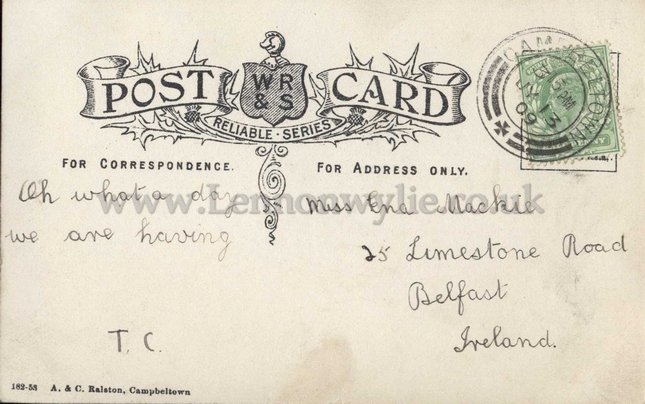 POST CARD
WR
& S
RELIABLE · SERIES
FOR CORRESPONDENCE.
FOR ADDRESS ONLY.
CAMPBELTOWN
09
Oh what a day
we are having
T. C.
Miss Ena Mackie
25 Limestone Road
Belfast
Ireland.
www.Lennonwylie.co.uk
182-53 A. & C. Ralston, Campbeltown